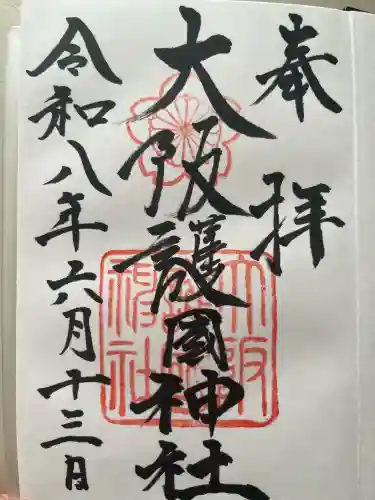 奉拝
大阪護國神社
令和八年六月十三日
大阪護國神社